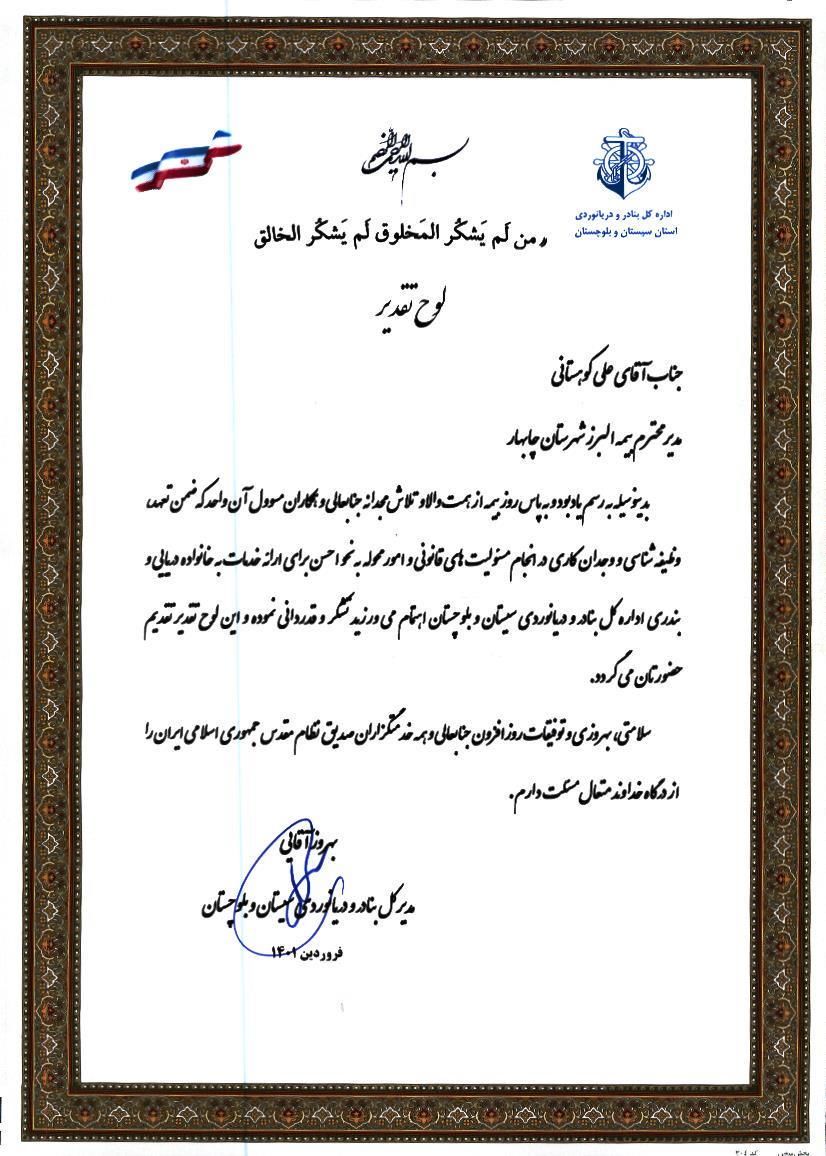 بسم الله الرحمن الرحیم
اداره کل بنادر و دریانوردی
استان سیستان و بلوچستان
من لَم یَشکُر المَخلوق لَم یَشکُر الخالق
لوح تقدیر
جناب آقای علی کوهستانی
مدیر محترم بیمه البرز شهرستان چابهار
بدینوسیله به رسم یادبود و به پاس روز بیمه از همت والا و تلاش مجدانه جنابعالی و همکاران مسوول آن واحد که ضمن تعهد،
وظیفه شناسی و وجدان کاری در انجام مسئولیت های قانونی و امور محوله به نحو احسن برای ارائه خدمات به خانواده دریایی و
بندری اداره کل بنادر و دریانوردی سیستان و بلوچستان اهتمام می ورزید تشکر و قدردانی نموده و این لوح تقدیر تقدیم
حضورتان می گردد.
سلامتی، بهروزی و توفیقات روز افزون جنابعالی و همه خدمتگزاران صدیق نظام مقدس جمهوری اسلامی ایران را
از درگاه خداوند متعال مسئلت دارم.
بهروز آقائی
مدیر کل بنادر و دریانوردی سیستان و بلوچستان
فروردین ۱۴۰۱
کد ۳۰۴